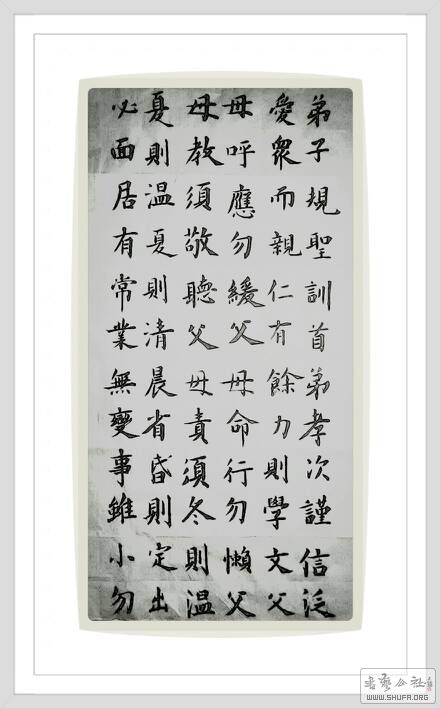 弟子規聖訓首弟孝次謹信泛
愛眾而親仁有餘力則學文父
母呼應勿緩父母命行勿懶父
母教須敬聽父母責須冬則温
夏則温夏則清晨省昏則定出
必面居有常業無變事雖小勿
公社
WWW.SHUFA.ORG